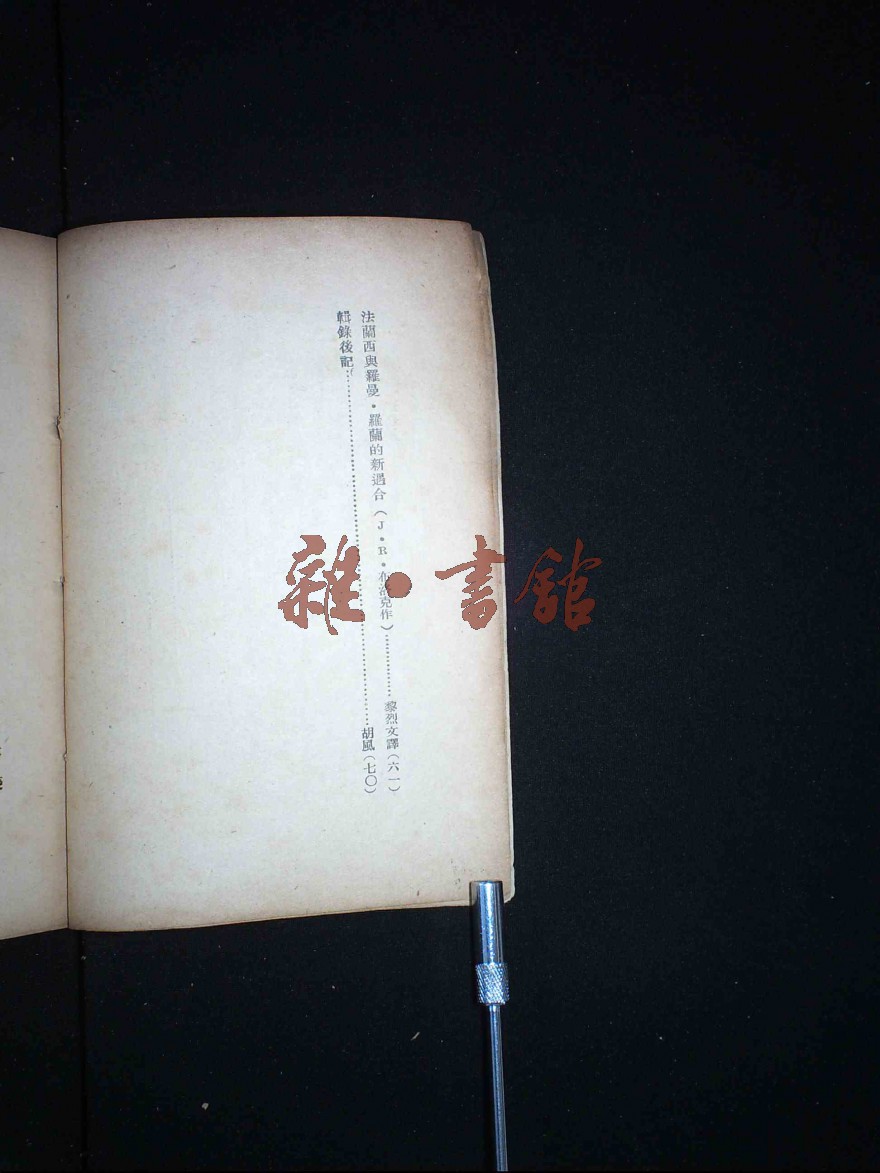 法蘭西與羅曼·羅蘭的新遇合(J·R·布洛克作)……………黎烈文譯(六一)
輯錄後記……………………………………………………胡風(七〇)
雜·書館